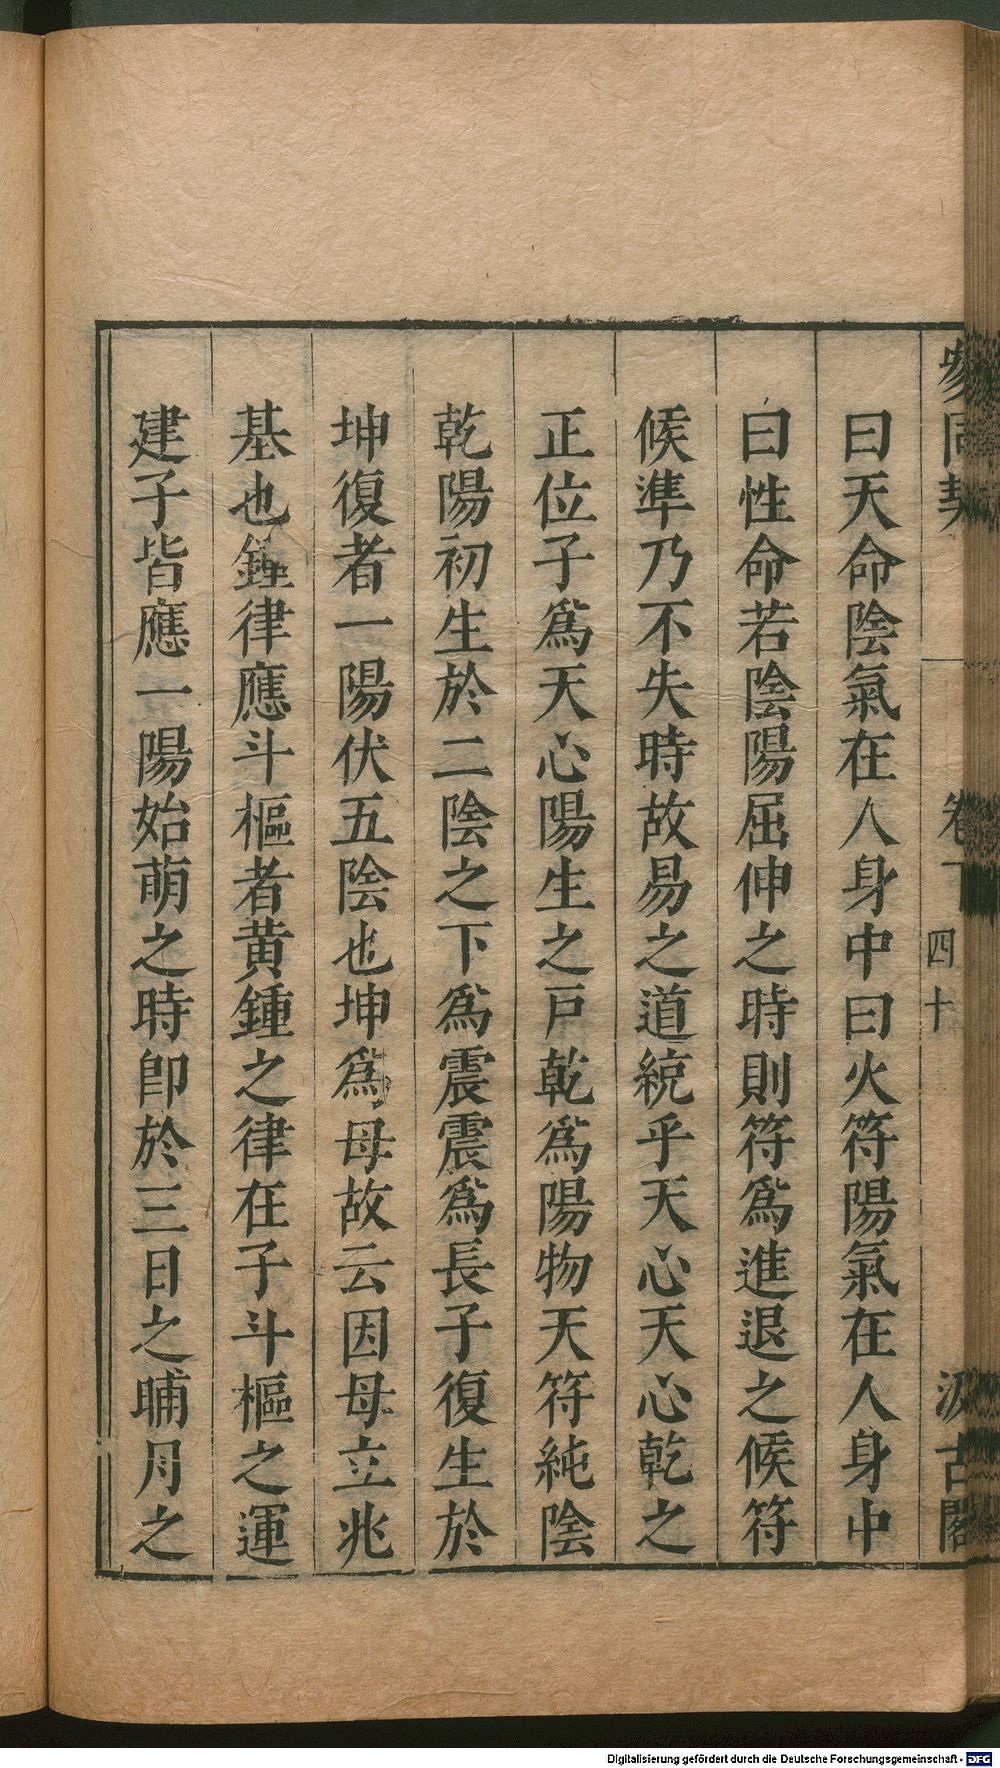 參同契 卷下 四十 汲古閣
曰天命陰氣在人身中曰火符陽氣在人身中
曰性命若陰陽屈伸之時則符爲進退之候符
候準乃不失時故易之道統乎天心天心乾之
正位子爲天心陽生之戸乾爲陽物天符純陰
乾陽初生於二陰之下爲震震爲長子復生於
坤復者一陽伏五陰也坤爲母故云因母立兆
基也鍾律應斗樞者黄鍾之律在子斗樞之運
建子皆應一陽始萌之時卽於三日之晡月之
Digitalisierung gefördert durch die Deutsche Forschungsgemeinschaft - DFG